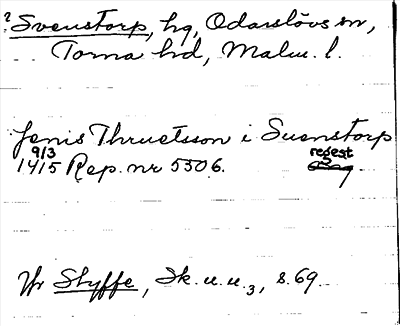 ? Svenstorp, hg, Odarslövs sn,
Torna hd, Malm. l.
Jenis Thruetsson i Suenstorp
9/3 1415 Rep. nr 5306. regest
Jfr Styffe, Sk. u. u. 3, s. 69.